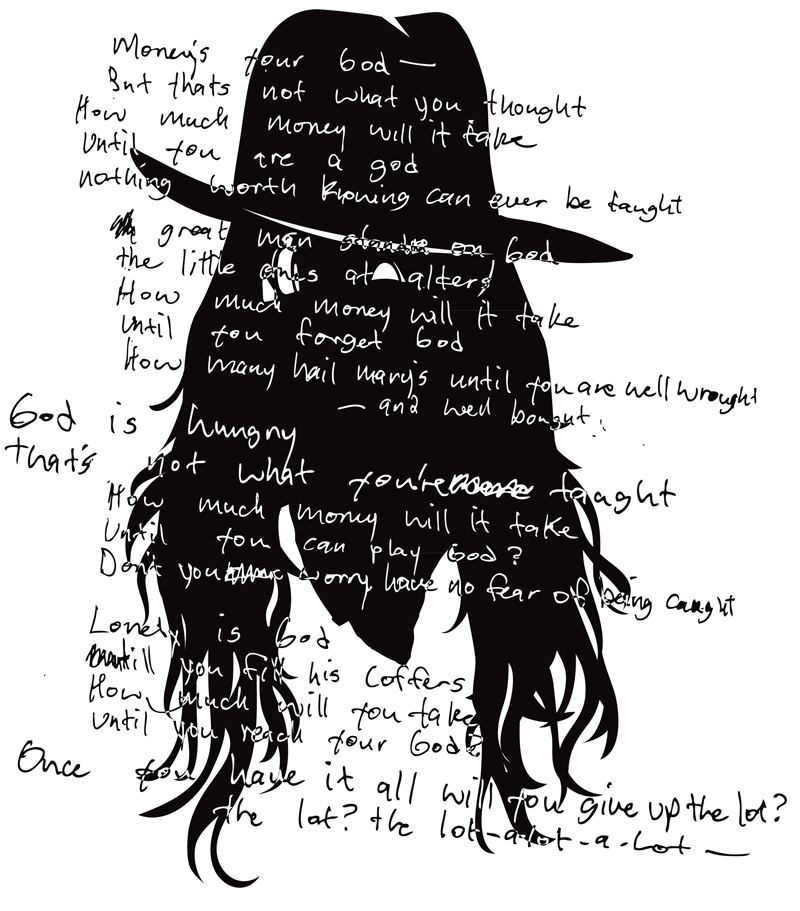 Money's your God —
But thats not what you thought
How much money will it take
Until you are a god
nothing worth knowing can ever be taught
great men on God
the little ones at alters
How much money will it take
Until you forget God
How many hail mary's until you are well wrought
— and well bought.
God is hungry
that's not what you're taught
How much money will it take
Until you can play God?
Don't you worry, have no fear of being caught
Lonely is God
until you fill his coffers
How much will you take
Until you reach your God?
Once you have it all will you give up the lot?
the lot? the lot-a-lot-a-lot —